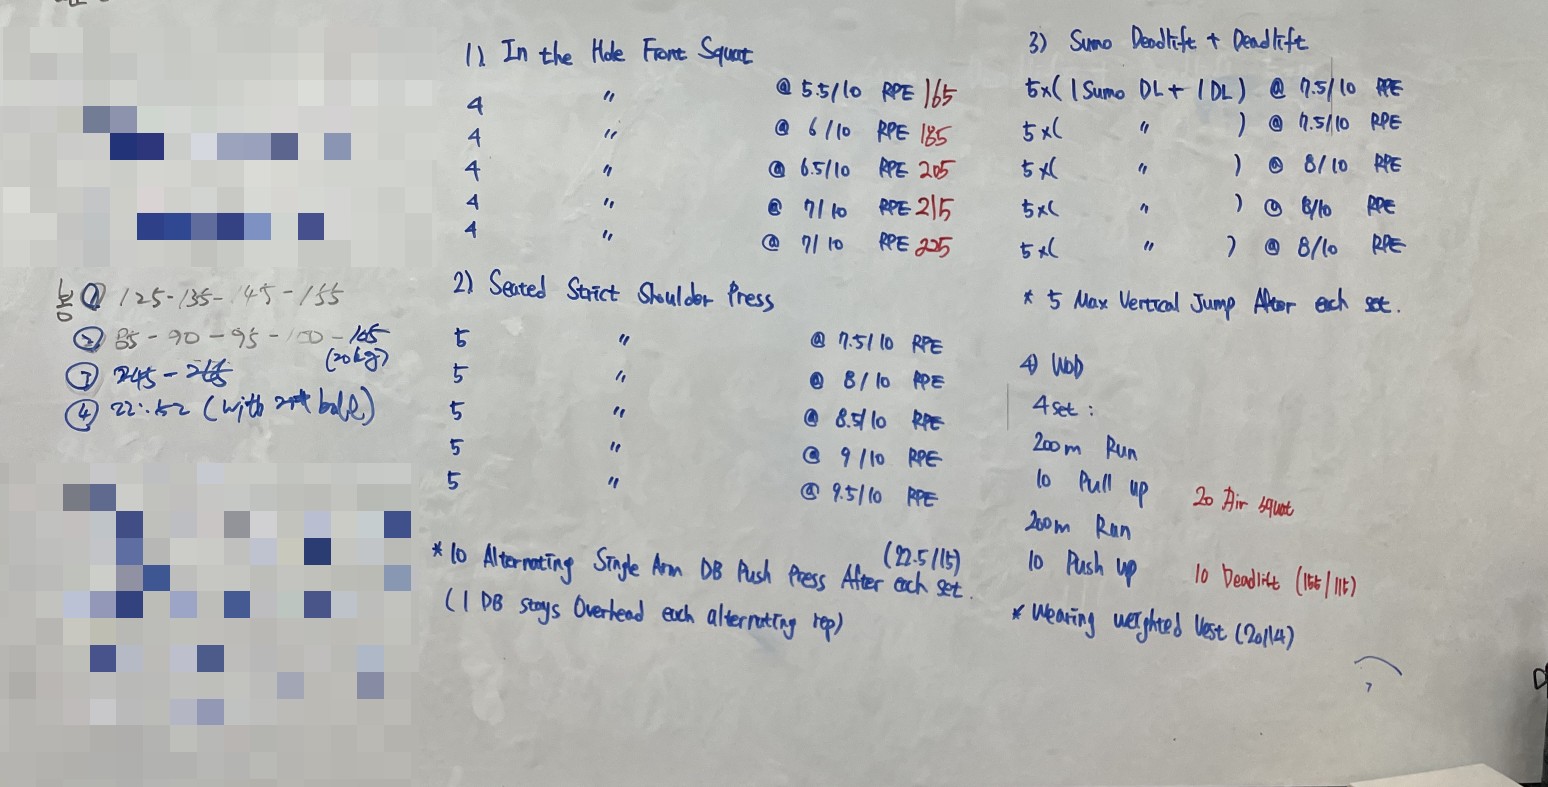 1) In the Hole Front Squat
4 " @ 5.5/10 RPE 165
4 " @ 6/10 RPE 185
4 " @ 6.5/10 RPE 205
4 " @ 7/10 RPE 215
4 " @ 7/10 RPE 225
2) Seated Strict Shoulder Press
5 " @ 7.5/10 RPE
5 " @ 8/10 RPE
5 " @ 8.5/10 RPE
5 " @ 9/10 RPE
5 " @ 9.5/10 RPE
* 10 Alternating Single Arm DB Push Press After each set. (22.5/15)
(1 DB stays Overhead each alternating rep)
3) Sumo Deadlift + Deadlift
5x( 1 Sumo DL + 1 DL ) @ 7.5/10 RPE
5x( " ) @ 7.5/10 RPE
5x( " ) @ 8/10 RPE
5x( " ) @ 8/10 RPE
5x( " ) @ 8/10 RPE
* 5 Max Vertical Jump After each set.
4) WOD
4 set :
200m Run
10 Pull up
20 Air squat
200m Run
10 Push up
10 Deadlift (155/115)
* Wearing weighted Vest (20/14)
봉 ① 125-135-145-155
② 85-90-95-100-105
(20kg)
③ 245-265
④ 22:52 (with ball)